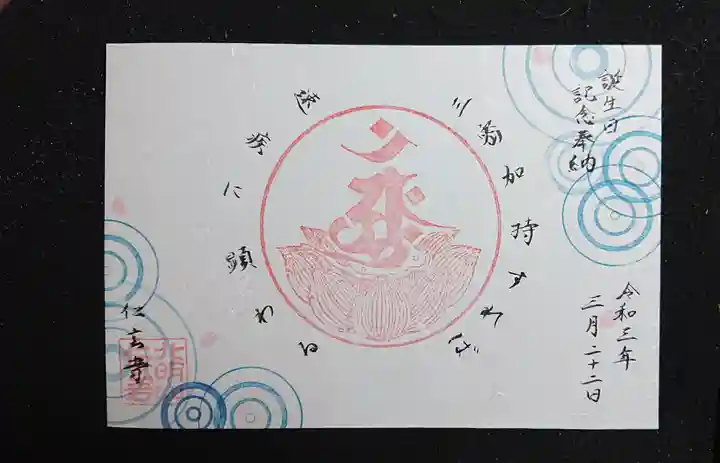 誕生日
記念奉納
令和三年
三月二十二日
三密加持すれば
速疾に顕わる